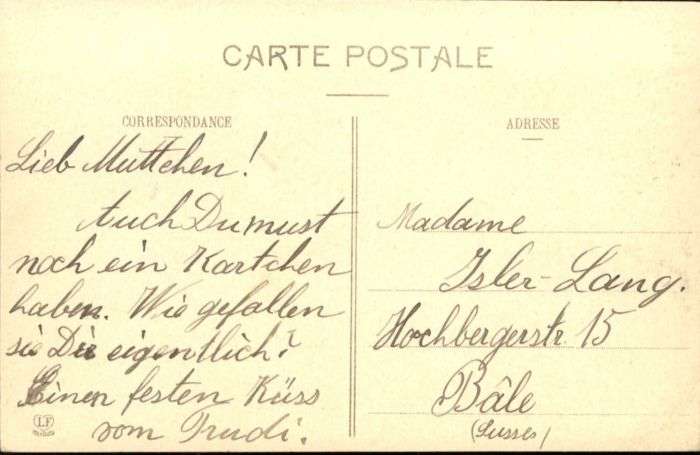 CARTE POSTALE
CORRESPONDANCE
Lieb Muttchen!
Auch Du must
noch ein Kartchen
haben. Wie gefallen
sie Dir eigentlich?
Einen festen Küss
vom Trudi.
LF
ADRESSE
Madame
Isler-Lang.
Hochbergerstr. 15
Bâle
(Susses)